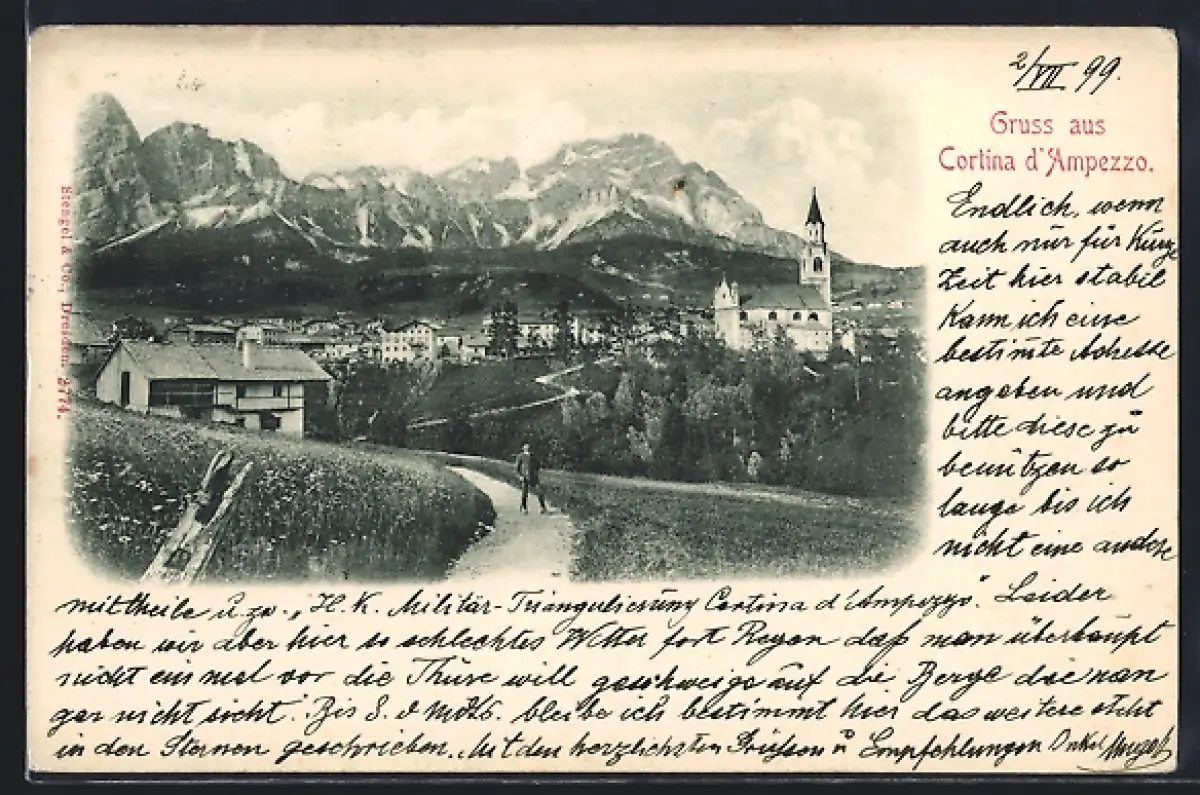 2/VII 99.
Gruss aus
Cortina d'Ampezzo.
Stengel & Co., Dresden 2774.
Endlich, wenn
auch nur für Kurze
Zeit hier stabil
Kann ich eine
bestimte Adresse
angeben und
bitte diese zu
benützen so
lange bis ich
nicht eine andere
mittheile u. zw. „K. K. Militär-Triangulierung Cortina d'Ampezzo". Leider
haben wir aber hier so schlechtes Wetter fort Regen daß man überhaupt
nicht ein mal vor die Thüre will geschweige auf die Berge die man
gar nicht sieht. Bis 8. d Mts. bleibe ich bestimmt hier das weitere steht
in den Sternen geschrieben. Mit den herzlichsten Grüssen u Empfehlungen Onkel